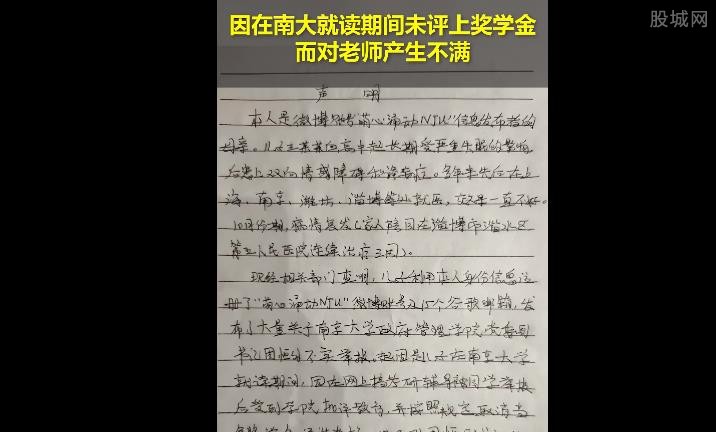 因在南大就读期间未评上奖学金
而对老师产生不满
股城网
声 明
本人是微博账号"萌心涌动NJU"信息发布者的
母亲。儿子王某某从高中起长期受严重失眠的影响
后患上双向情感障碍和
多年来先后在上
海、南京、潍坊、淄博等处就医,效果一直不好。
10月份期,病情复发(家人陪同在淄博市淄川区
第三人民医院连续治疗三周)。
现经相关部门查明,儿子利用本人身份信息注
册了"萌心涌动NJU"微博账号及15个谷歌邮箱,发
布了大量关于南京大学政府管理学院党委副
书记
不实举报。起因是儿子在南京大学
就读期间,因在网上搞考研辅导被同学举报
后受到学院批评教育,并按照规定取消当